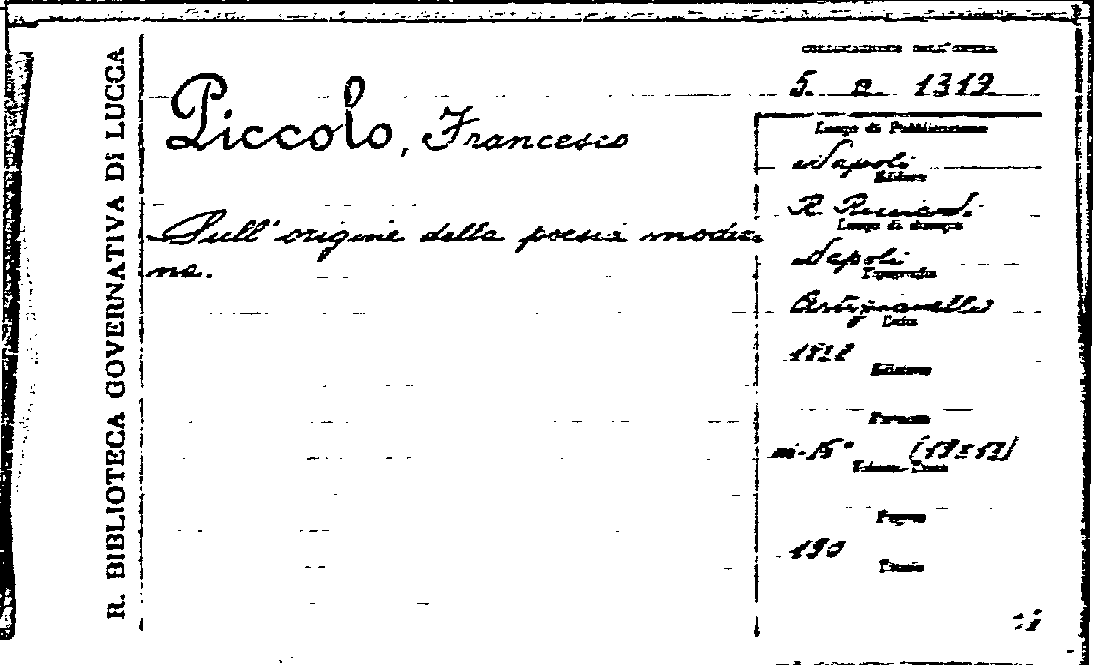 R. BIBLIOTECA GOVERNATIVA DI LUCCA
Piccolo, Francesco
Sull'origine della poesia moder-
na.
COLLOCAZIONE DELL'OPERA
5. 1319
Luogo di Pubblicazione
Napoli
Editore
R.
Luogo di stampa
Napoli
Tipografia
Artigianelli
Data
Edizione
Formato
in-16°
Pagine
190